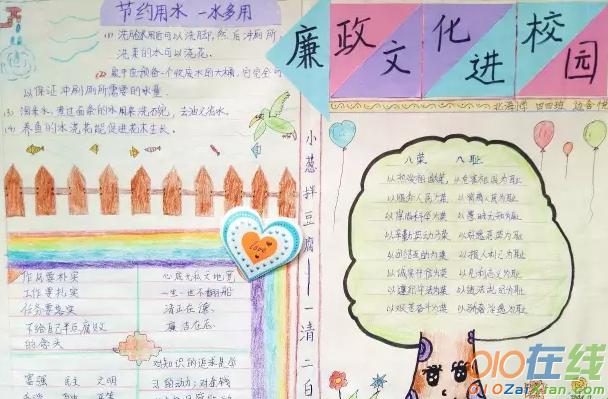 节约用水 一水多用
(1) 洗脸水用后可以洗脚,然后冲厕所
洗菜的水可以浇花。
(2) 家中应预备一个收废水的大桶,它完全可
以保证冲刷厕所需要的水量
(3) 淘米水,煮过面条的水用来洗碗筷,去油又省水。
(4) 养鱼的水浇花能促进花木生长。
廉政文化进校园
四四班
小葱拌豆腐——一清二白
八荣 八耻
以热爱祖国为荣,以危害祖国为耻
以服务人民为荣,以背离人民为耻
以崇尚科学为荣,以愚昧无知为耻
以辛勤劳动为荣,以好逸恶劳为耻
以团结互助为荣,以损人利己为耻
以诚实守信为荣,以见利忘义为耻
以遵纪守法为荣,以违法乱纪为耻
以艰苦奋斗为荣,以骄奢淫逸为耻
Love
作风要朴实
工作要扎实
任务要落实
不给自己半点腐败
的念头
心底无私天地宽
一生一世不翻船
清正在德
廉洁在志
对知识的追求是学
习的动力;对金钱
富强 民主 文明
010在线
010ZaiXian.com